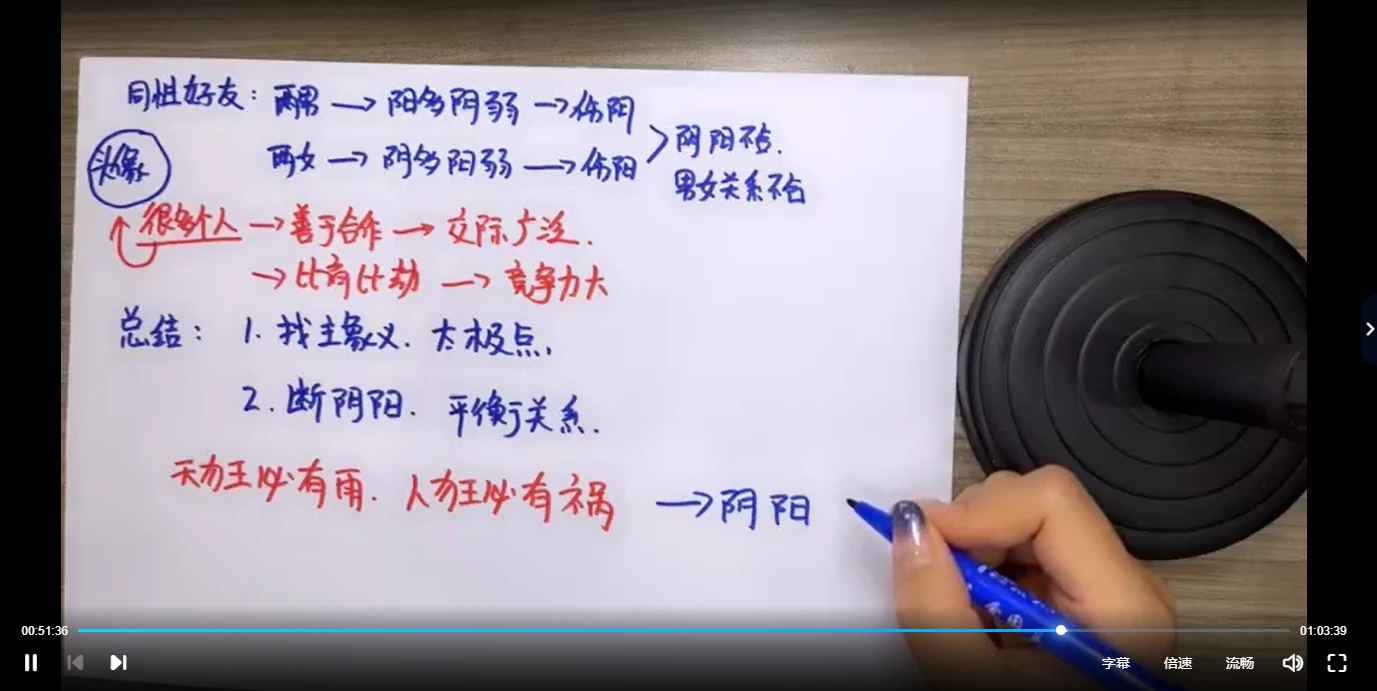 同性好友：两男→阳多阴弱→伤阴
两女→阴多阳弱→伤阳
阴阳不合.
男女关系不合
头像
很多个人→善于合作→交际广泛.
→比肩比劫→竞争力大
总结：1.找主象义.太极点,
2.断阴阳.平衡关系.
天物王必有雨.人物王必有祸→阴阳
00:51:36
01:03:39
字幕 倍速 流畅